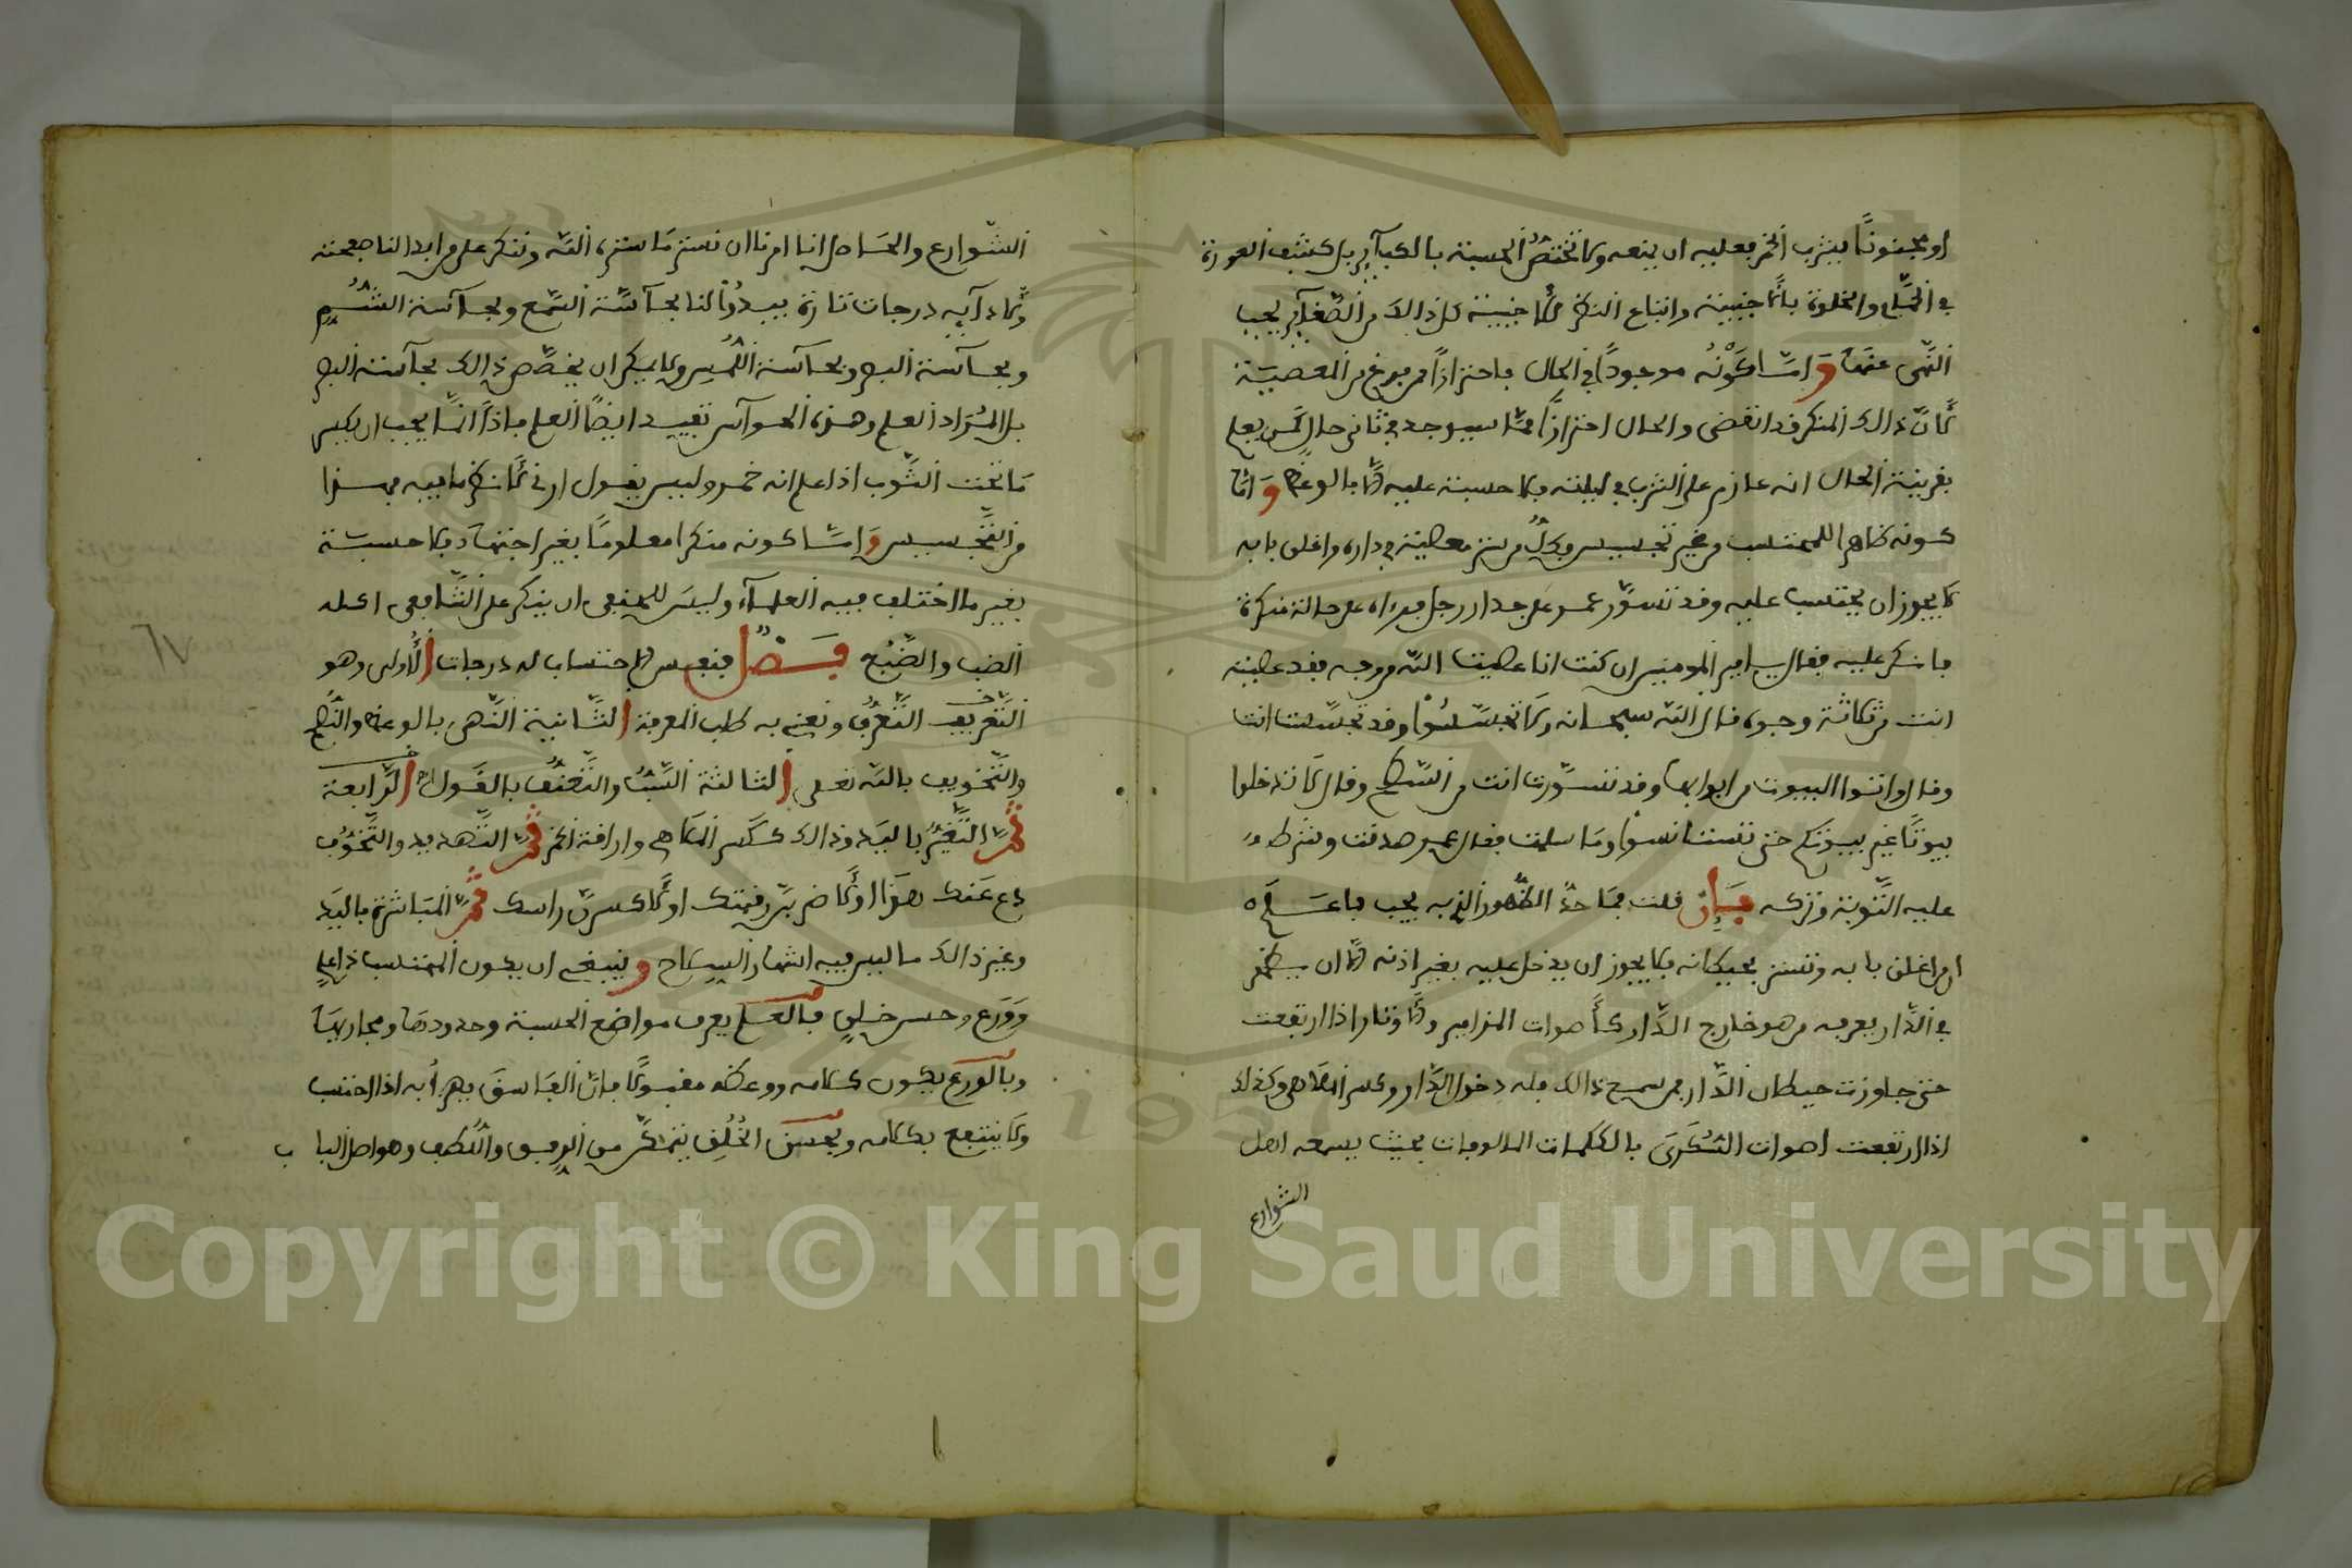 او مجنونًا يشرب الخمر فعليه ان يمنعه ولا تختصّ الحسبة بالكبآير بل كشف العورة
في الحمّام والخلوة بالاجنبية واتباع النظر للاجنبية كل ذالك من الصّغآير يجب
النّهى عنها وامّا كونه موجودًا في الحال فاحترازًا من فرغ من المعصية
لانّ ذالك المنكر قد انقضى والحال احترازًا ممّا سيوجد في ثانى حال كمن يعلم
بقرينة الحال انه عازم على الشرب في ليلته فلا حسبة عليه الّا بالوعظ وامّا
كونه ظاهرا للمحتسب من غير تجسيس فكلّ من ستر معصية في داره واغلق بابه
لا يجوز ان يحتسب عليه وقد تسوّر عمر على جدار رجل فرءاه على حالة منكرة
فانكر عليه فقال يا امير المومنين ان كنت انا عصيت اللّه من وجه فقد عصيته
انت من ثلاثة وجوه قال اللّه سبحانه ولا تجسّسُوا وقد تجسّست انت
وقال واتوا البيوت من ابوابها وقد تسوّرت انت من السّطح وقال لا تدخلوا
بيوتًا غير بيوتكم حتى تستانسوا وما سلمت فقال عمر صدقت وشرط
عليه التّوبة وتركه بيان قلت فما حدّ الظّهور الذي يجب فاعلم
ان من اغلق بابه وتستر بحيطانه فلا يجوز ان يدخل عليه بغير اذنه الّا ان يظهر
في الدّار يعرفه من هو خارج الدّار كأصوات المزامير والاوتار اذا ارتفعت
حتى جاوزت حيطان الدّار فمن سمع ذالك فله دخول الدّار وكسر الملاهى وكذلك
اذا ارتفعت اصوات السّكرى بالكلمات المالوفات بحيث يسمعه اهل
الشوارع
الشّوارع والحاصل انا امرنا ان نستر ما ستره اللّه وننكر على من ابدا لنا صفحته
ولاءآيه درجات تارة يبدُو لنا بحآسّة السّمع وبحآسة الشّم
وبحآسة البصر وبحآسة اللّمس ولا يمكن ان يخصّص ذالك بحآسة البصر
بل المراد العلم وهذه الحوآس تفيد ايضًا العلم فاذًا انّما يجب ان يكسر
ما تحت الثّوب اذا علم انه خمر وليس يقول ارنى لانظر ما فيه فهذا
من التّجسيس وامّا كونه منكرا معلومًا بغير اجتهاد فلا حسبة
بغير ما اختلف فيه العلمآء وليس للحنفى ان ينكر على الشّافعى اكله
الضب والضّبع فصل فنفس الاحتساب له درجات الأولى وهو
التّعريف التّعرّف ونعنى به طلب المعرفة الثّانية النّهى بالوعظ والنّصح
والتّخويف باللّه تعلى الثالثة السّبّ والتّعنّف بالقول الرّابعة
ثمّ التّغيّر باليد وذالك ككسر الملاهى واراقة الخمر ثمّ التّهديد والتّخوّف
دع عنك هذا اولا ضربّ رقبتك اولا كسرنّ راسك ثمّ المباشرة باليد
وغير ذالك ما ليس فيه اشهار السّلاح وينبغى ان يكون المحتسب ذا علم
وورع وحسن خلق فالعلم يعرف مواضع الحسبة وحدودها ومجاريها
وبالورع يكون كلامه ووعظه مقبولًا فانّ الفاسق يهزأ به اذا احتسب
ولا ينتفع بكلامه وبحسن الخُلُق يتمكّن من الرفق واللّطف وهو اصل الباب
٦٧
Copyright © King Saud University
1957